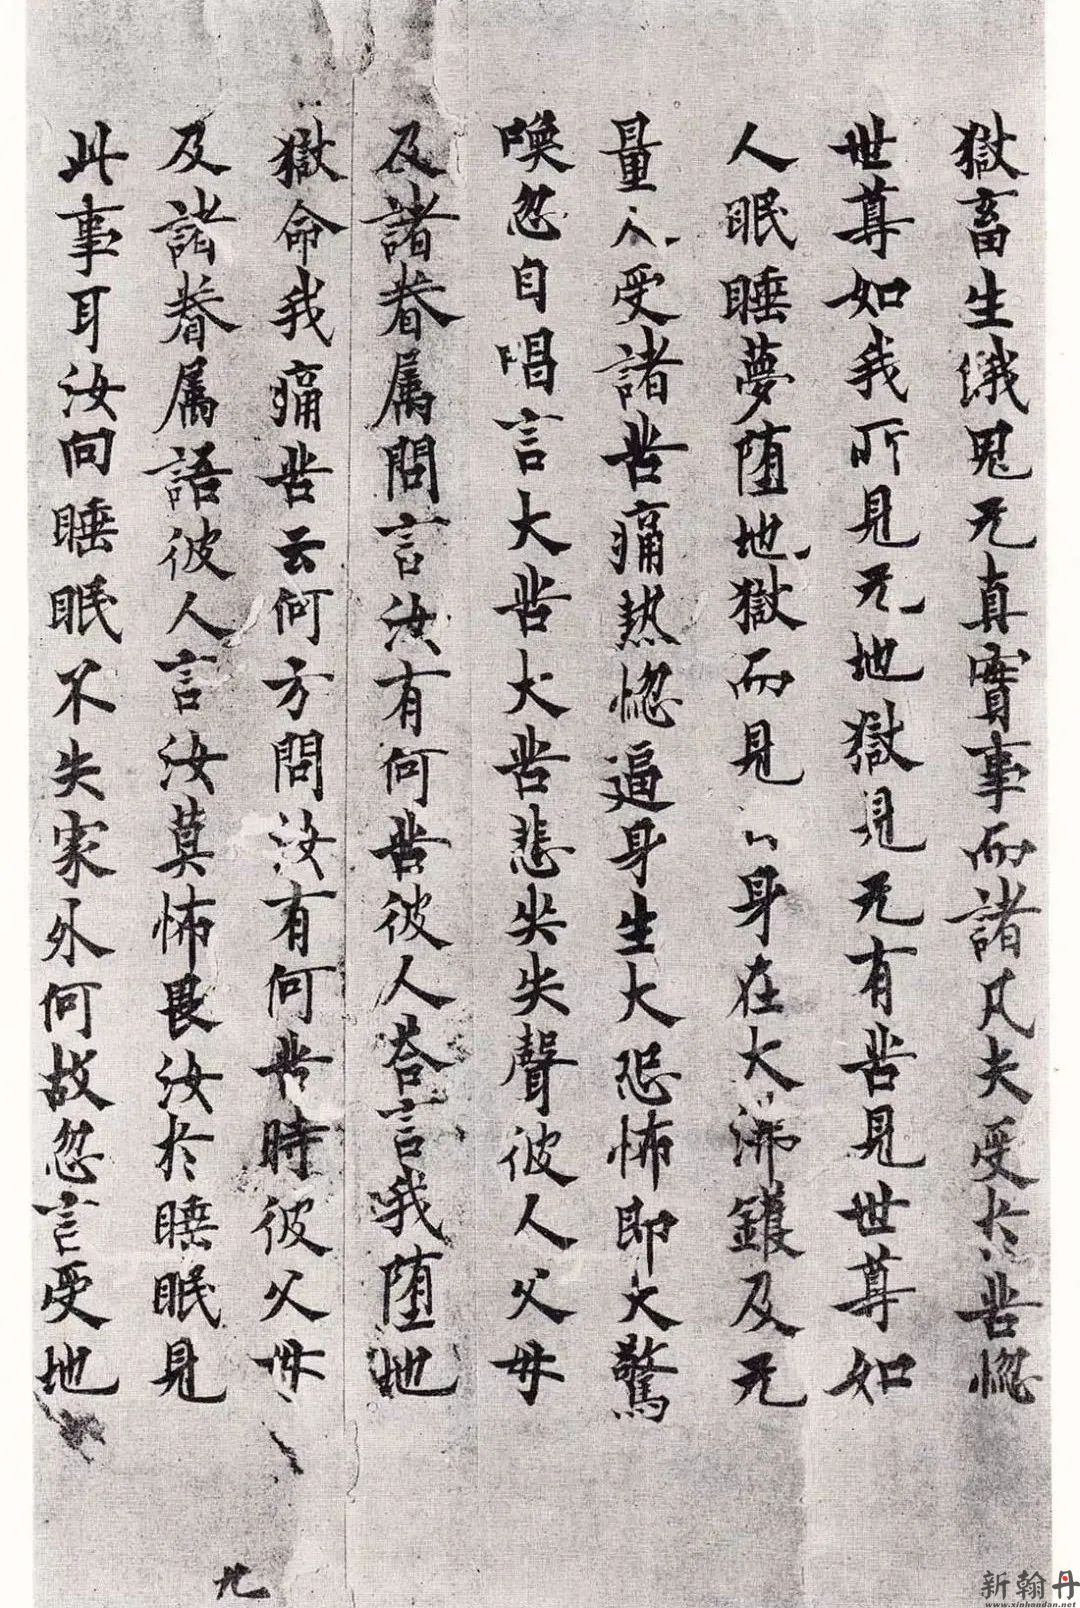 獄畜生餓鬼无真實事而諸凡夫受扵苦惱
世尊如我所見无地獄見无有苦見世尊如
人眠睡夢堕地獄而見〻身在大沸鑊及无
量人受諸苦痛熱惱逼身生大恐怖即大驚
喚忽自唱言大苦大苦悲哭失聲彼人父母
及諸眷属問言汝有何苦彼人荅言我堕地
獄命我痛苦云何方問汝有何苦時彼父母
及諸眷属語彼人言汝莫怖畏汝扵睡眠見
此事耳汝向睡眠不失家外何故忽言受地
九
新翰丹
www.xinhandan.net